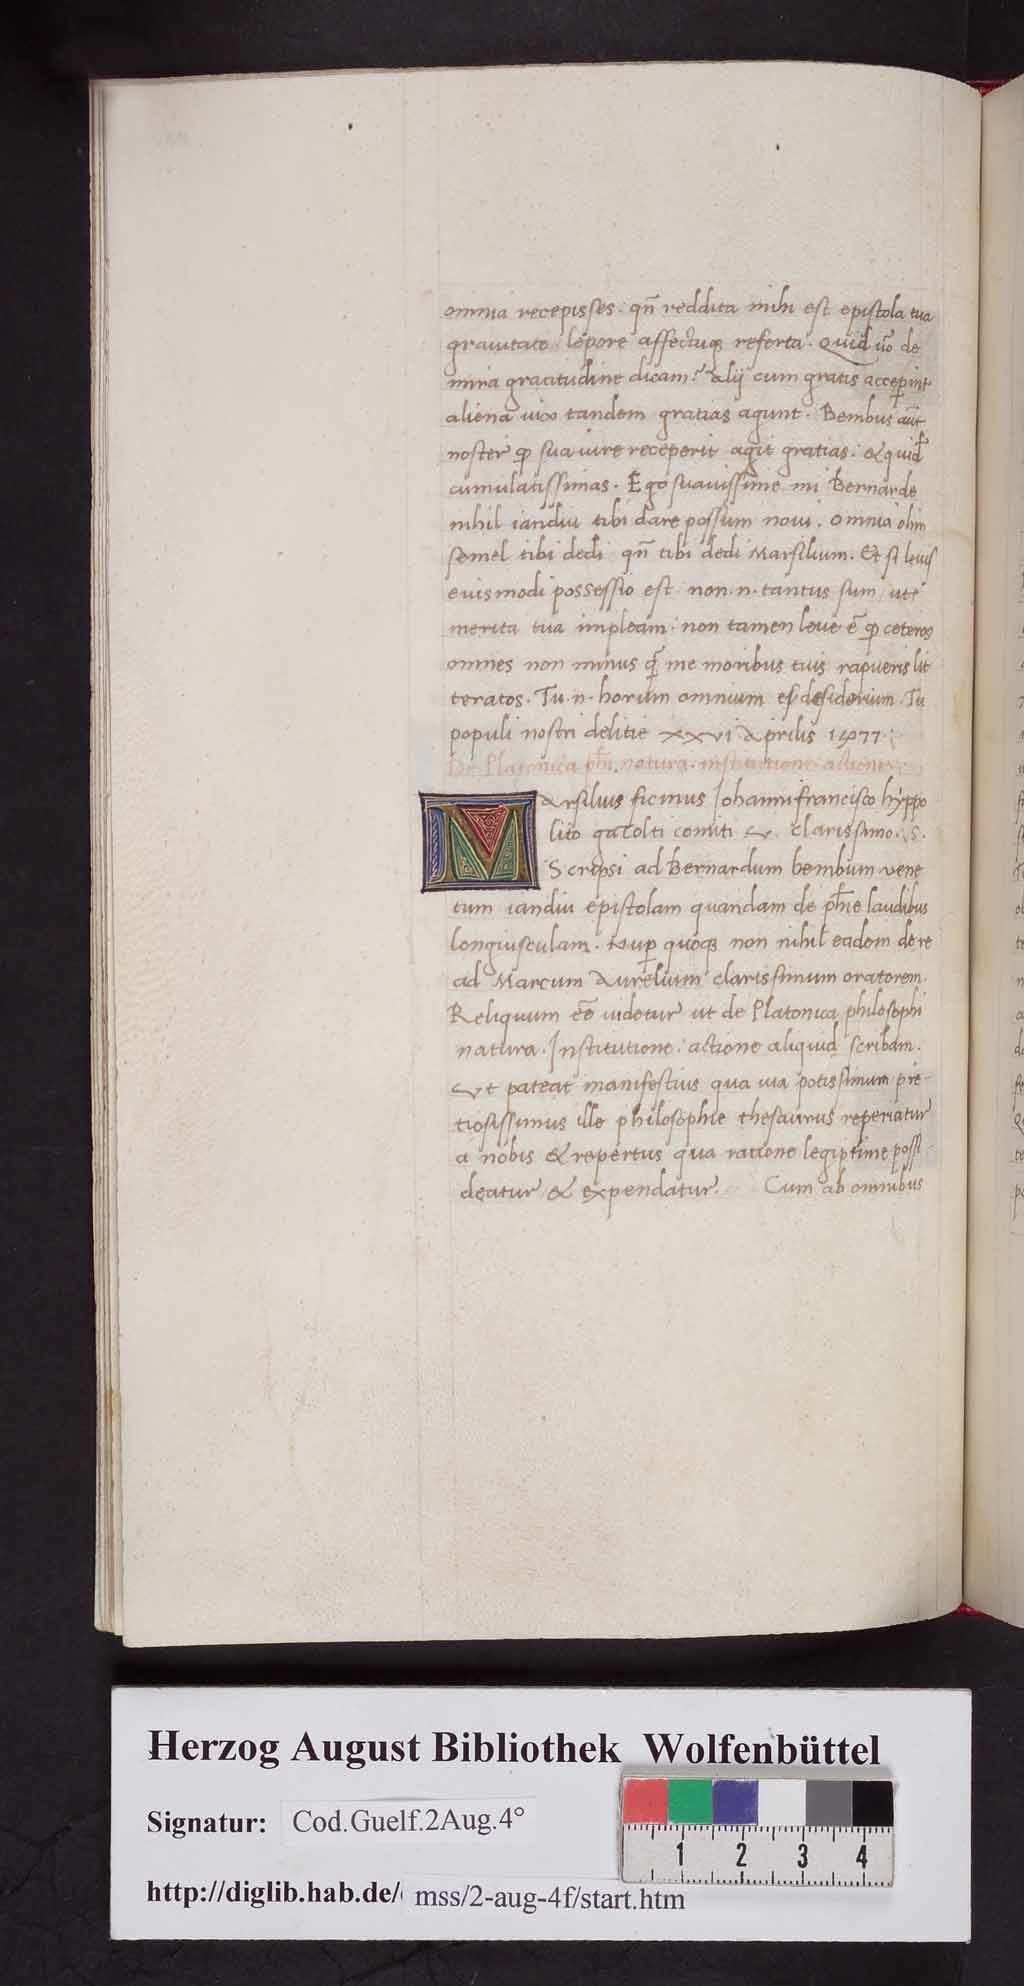 omnia recepisses. qn̄ reddita mihi est epistola tua
grauitate lepore affectuq; referta. Quid uō de
mira gratitudine dicam? Alij cum gratis acceperint
aliena uix tandem gratias agunt. Bembus aūt
noster q sua iure receperit agit gratias. & quidē
cumulatissimas. Ego suauissime mi Bernarde
nihil iandiu tibi dare possum noui. omnia olim
semel tibi dedi qn̄ tibi dedi Marsilium. Et si leuis
eiusmodi possessio est. non.n.tantus sum ut
merita tua impleam. non tamen leue ē q ceteros
omnes non minus q̄ me moribus tuis rapueris lit
teratos. Tu.n.horum omnium es desiderium. Tu
populi nostri delitie xxvi Aprilis 1477.
De Platonica phi. natura. institutione. actione
Marsilius ficinus Johannifrancisco hyppo
lito gazolti comiti V. clarissimo. S.
Scripsi ad Bernardum bembum vene
tum iandiu epistolam quandam de phie laudibus
longiusculam. Nup quoq; non nihil eadem de re
ad Marcum Aurelium clarissimum oratorem.
Reliquum eē uidetur ut de Platonica philosophi
natura. Institutione. actione aliquid scribam.
Vt pateat manifestius qua uia potissimum pre-
tiosissimus ille philosophie thesaurus reperiatur
a nobis & repertus qua ratione legiptime possi
deatur & expendatur. Cum ab omnibus
Herzog August Bibliothek Wolfenbüttel
Signatur: Cod.Guelf.2Aug.4°
1 2 3 4
http://diglib.hab.de/ mss/2-aug-4f/start.htm